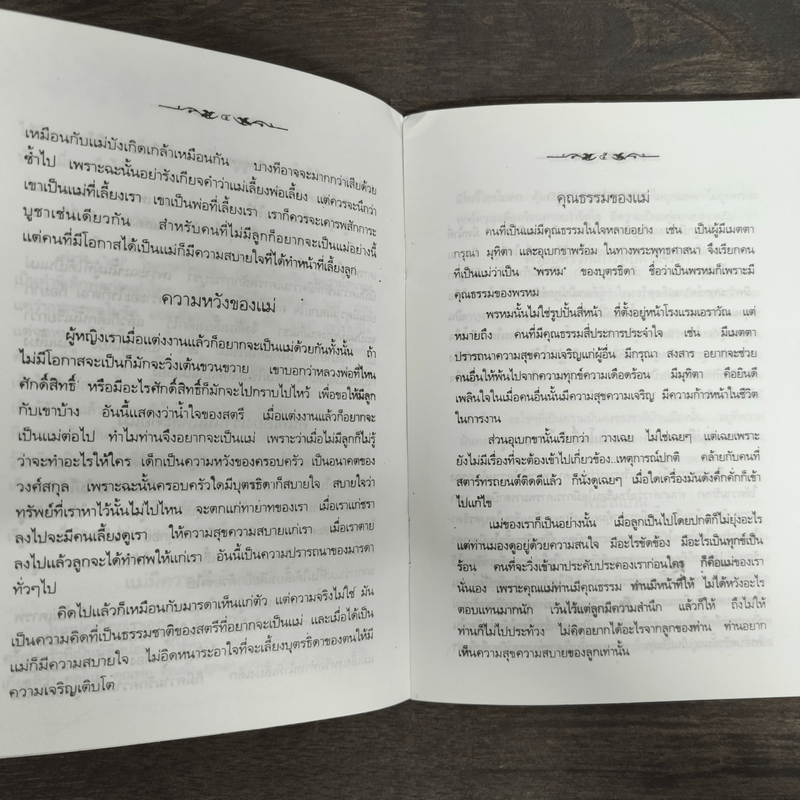 ๔
เหมือนกับแม่บังเกิดเกล้าเหมือนกัน บางทีอาจจะมากกว่าเสียด้วย
ซ้ำไป เพราะฉะนั้นอย่ารังเกียจคำว่าแม่เลี้ยงพ่อเลี้ยง แต่ควรจะนึกว่า
เขาเป็นแม่ที่เลี้ยงเรา เขาเป็นพ่อที่เลี้ยงเรา เราก็ควรจะเคารพสักการะ
บูชาเช่นเดียวกัน สำหรับคนที่ไม่มีลูกก็อยากจะเป็นแม่อย่างนี้
แต่คนที่มีโอกาสได้เป็นแม่ก็มีความสบายใจที่ได้ทำหน้าที่เลี้ยงลูก
ความหวังของแม่
ผู้หญิงเราเมื่อแต่งงานแล้วก็อยากจะเป็นแม่ด้วยกันทั้งนั้น ถ้า
ไม่มีโอกาสจะเป็นก็มักจะวิ่งเต้นขวนขวาย เขาบอกว่าหลวงพ่อที่ไหน
ศักดิ์สิทธิ์ หรือมีอะไรศักดิ์สิทธิ์ก็มักจะไปกราบไปไหว้ เพื่อขอให้มีลูก
กับเขาบ้าง อันนี้แสดงว่าน้ำใจของสตรี เมื่อแต่งงานแล้วก็อยากจะ
เป็นแม่ต่อไป ทำไมท่านจึงอยากจะเป็นแม่ เพราะว่าเมื่อไม่มีลูกก็ไม่รู้
ว่าจะทำอะไรให้ใคร เด็กเป็นความหวังของครอบครัว เป็นอนาคตของ
วงศ์สกุล เพราะฉะนั้นครอบครัวใดมีบุตรธิดาก็สบายใจ สบายใจว่า
ทรัพย์ที่เราหาไว้นั้นไม่ไปไหน จะตกแก่ทายาทของเรา เมื่อเราแก่ชรา
ลงไปจะมีคนเลี้ยงดูเรา ให้ความสุขความสบายแก่เรา เมื่อเราตาย
ลงไปแล้วลูกจะได้ทำศพให้แก่เรา อันนี้เป็นความปรารถนาของมารดา
ทั่วๆไป
คิดไปแล้วก็เหมือนกับมารดาเห็นแก่ตัว แต่ความจริงไม่ใช่ มัน
เป็นความคิดที่เป็นธรรมชาติของสตรีที่อยากจะเป็นแม่ และเมื่อได้เป็น
แม่ก็มีความสบายใจ ไม่อิดหนาระอาใจที่จะเลี้ยงบุตรธิดาของตนให้มี
ความเจริญเติบโต
๕
คุณธรรมของแม่
คนที่เป็นแม่มีคุณธรรมในใจหลายอย่าง เช่น เป็นผู้มีเมตตา
กรุณา มุทิตา และอุเบกขาพร้อม ในทางพระพุทธศาสนา จึงเรียกคน
ที่เป็นแม่ว่าเป็น "พรหม" ของบุตรธิดา ชื่อว่าเป็นพรหมก็เพราะมี
คุณธรรมของพรหม
พรหมนั้นไม่ใช่รูปปั้นสี่หน้า ที่ตั้งอยู่หน้าโรงแรมเอราวัณ แต่
หมายถึง คนที่มีคุณธรรมสี่ประการประจำใจ เช่น มีเมตตา
ปรารถนาความสุขความเจริญแก่ผู้อื่น มีกรุณา สงสาร อยากจะช่วย
คนอื่นให้พ้นไปจากความทุกข์ความเดือดร้อน มีมุทิตา คือยินดี
เพลินใจในเมื่อคนอื่นนั้นมีความสุขความเจริญ มีความก้าวหน้าในชีวิต
ในการงาน
ส่วนอุเบกขานั้นเรียกว่า วางเฉย ไม่ใช่เฉยๆ แต่เฉยเพราะ
ยังไม่มีเรื่องที่จะต้องเข้าไปเกี่ยวข้อง..เหตุการณ์ปกติ คล้ายกับคนที่
สตาร์ทรถยนต์ติดดีแล้ว ก็นั่งดูเฉยๆ เมื่อใดเครื่องมันดังคึ่กคั่กก็เข้า
ไปแก้ไข
แม่ของเราก็เป็นอย่างนั้น เมื่อลูกเป็นไปโดยปกติก็ไม่ยุ่งอะไร
แต่ท่านมองดูอยู่ด้วยความสนใจ มีอะไรขัดข้อง มีอะไรเป็นทุกข์เป็น
ร้อน คนที่จะวิ่งเข้ามาประคับประคองเราก่อนใคร ก็คือแม่ของเรา
นั่นเอง เพราะคุณแม่ท่านมีคุณธรรม ท่านมีหน้าที่ให้ ไม่ได้หวังอะไร
ตอบแทนมากนัก เว้นไว้แต่ลูกมีความสำนึก แล้วก็ให้ ถึงไม่ให้
ท่านก็ไม่ไปประท้วง ไม่คิดอยากได้อะไรจากลูกของท่าน ท่านอยาก
เห็นความสุขความสบายของลูกเท่านั้น